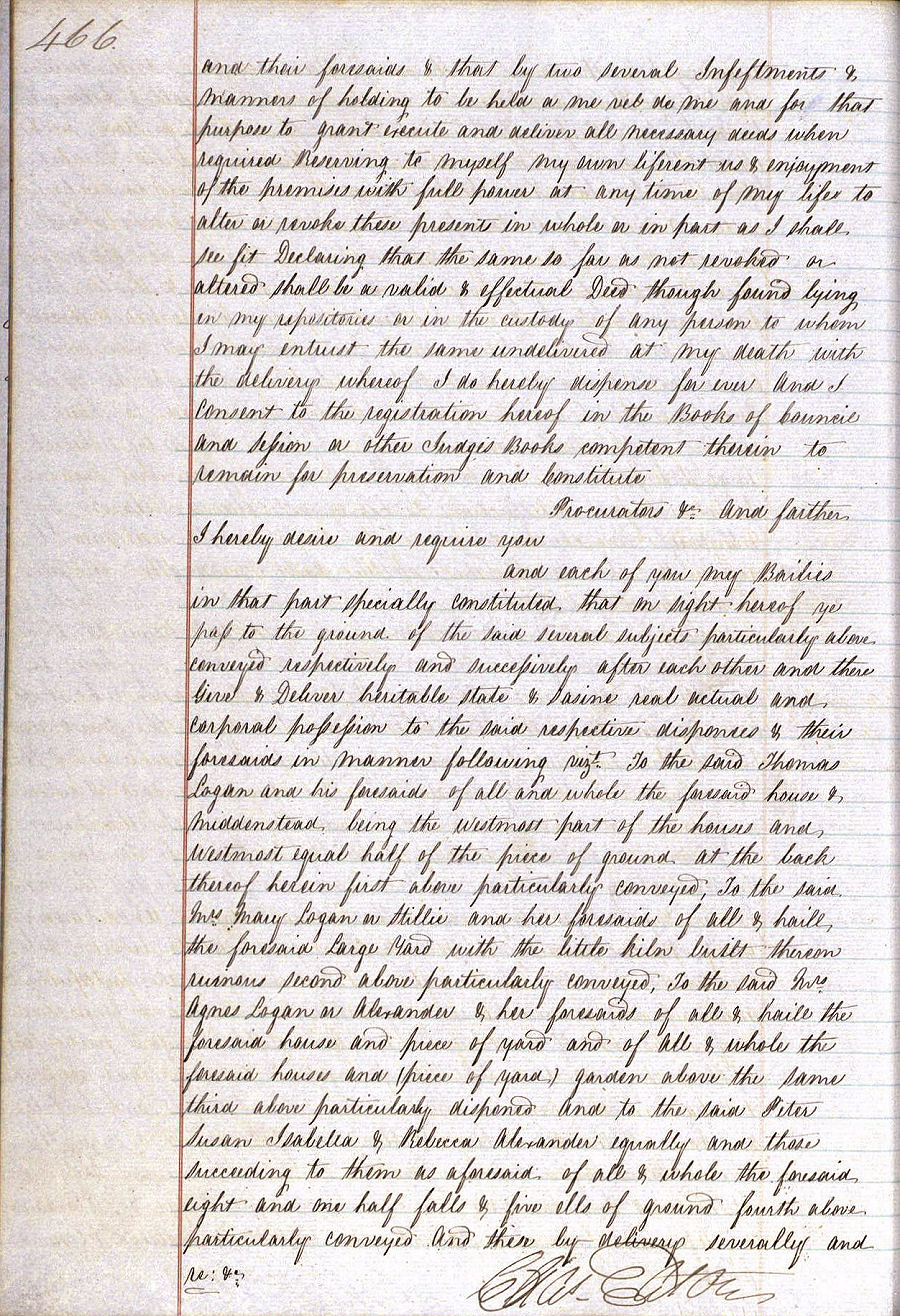 466.
and their foresaids & that by two several Infeftments &
manners of holding to be held a me vel de me and for that
purpose to grant execute and deliver all necessary deeds when
required Reserving to myself my own liferent us & enjoyment
of the premises with full power at any time of my life to
alter or revoke these presents in whole or in part as I shall
see fit Declaring that the same so far as not revoked or
altered shall be a valid & effectual Deed though found lying
in my repositories or in the custody of any person to whom
I may entrust the same undelivered at my death with
the delivery whereof I do hereby dispense for ever And I
Consent to the registration hereof in the Books of Council
and Session or other Judges Books competent therein to
remain for preservation and Constitute
Procurators &c And farther
I hereby desire and require you
and each of you my Bailies
in that part specially constituted that on sight hereof ye
pass to the ground of the said several subjects particularly above
conveyed respectively and successively after each other and there
Give & Deliver heritable state & sasine real actual and
corporal possession to the said respective disponees & their
foresaids in manner following vizt. To the said Thomas
Logan and his foresaids of all and whole the foresaid house &
middenstead being the westmost part of the houses and
westmost equal half of the piece of ground at the back
thereof herein first above particularly conveyed; To the said
Mrs Mary Logan or Stillie and her foresaids of all & haill
the foresaid Large Yard with the little kiln built thereon
ruinous second above particularly conveyed, To the said Mrs
Agnes Logan or Alexander & her foresaids of all & haill the
foresaid house and piece of yard and of all & whole the
foresaid houses and (piece of yard) garden above the same
third above particularly disponed and to the said Peter
Susan Isabella & Rebecca Alexander equally and those
succeeding to them as aforesaid of all & whole the foresaid
eight and one half falls & five ells of ground fourth above
particularly conveyed And these by delivery severally and
re: &c